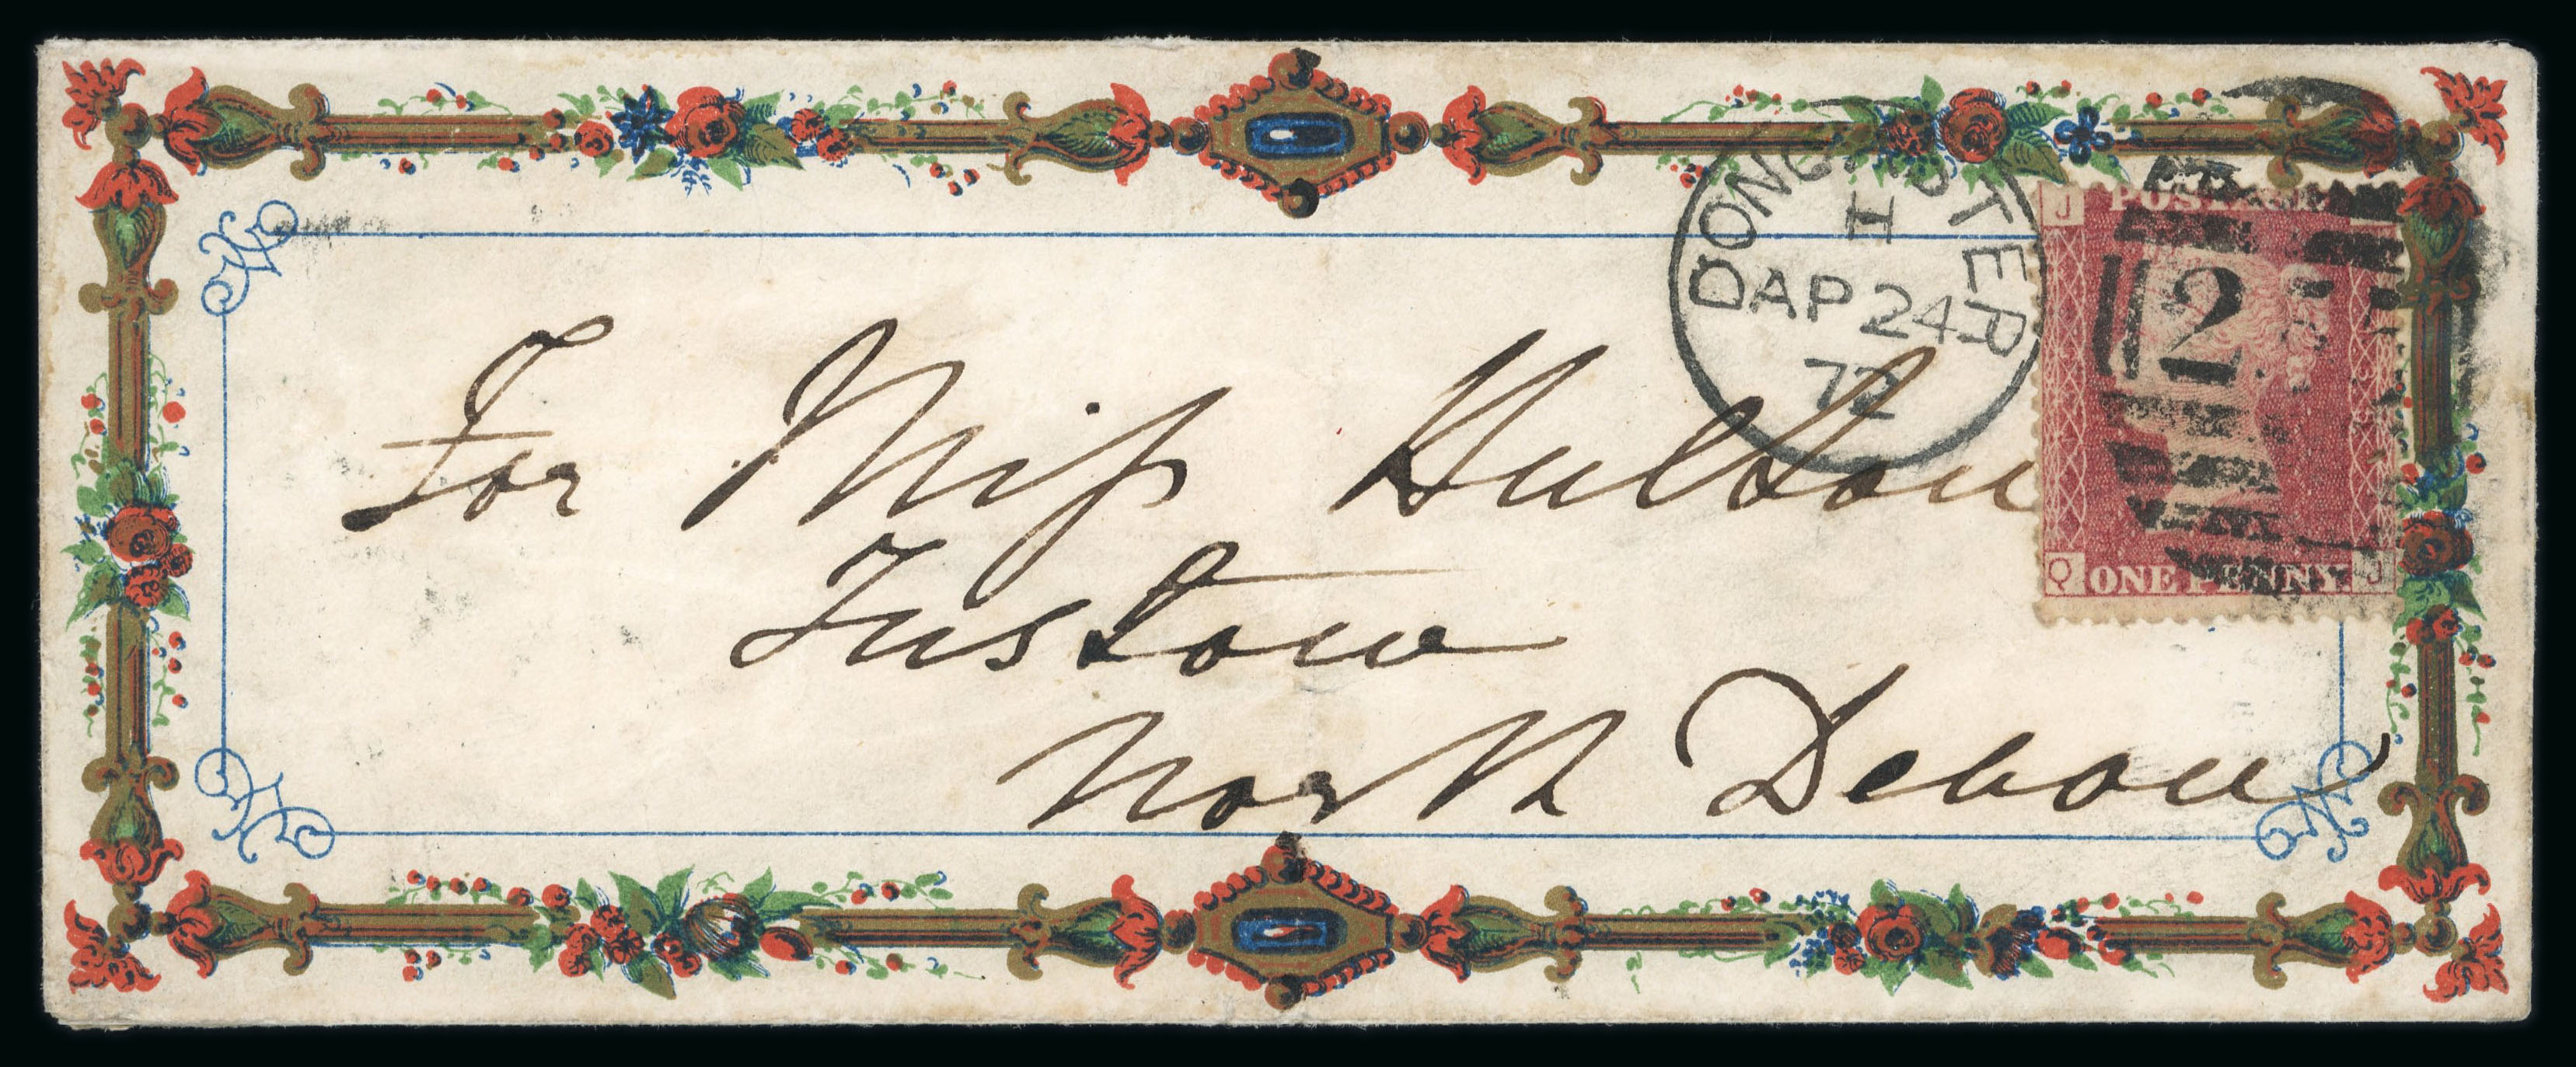 For Miss Hulton
Instow
North Devon
DONCASTER
H
AP 24
72
J POSTAGE
2
Q ONE PENNY. J